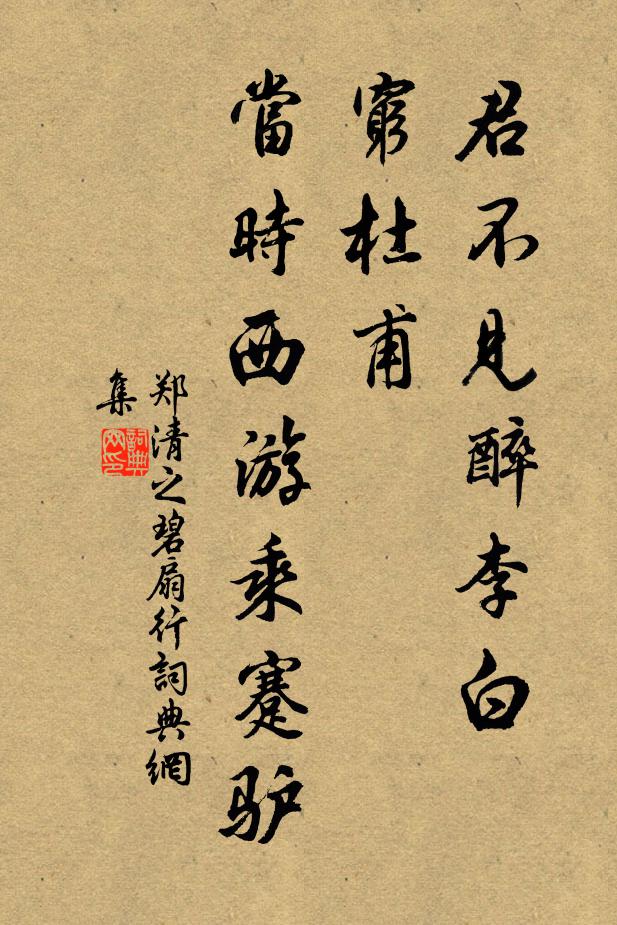 君不見醉李白
窮杜甫
當時西游乘蹇驴
郑清之碧扇行詞典網
集
詞典网印